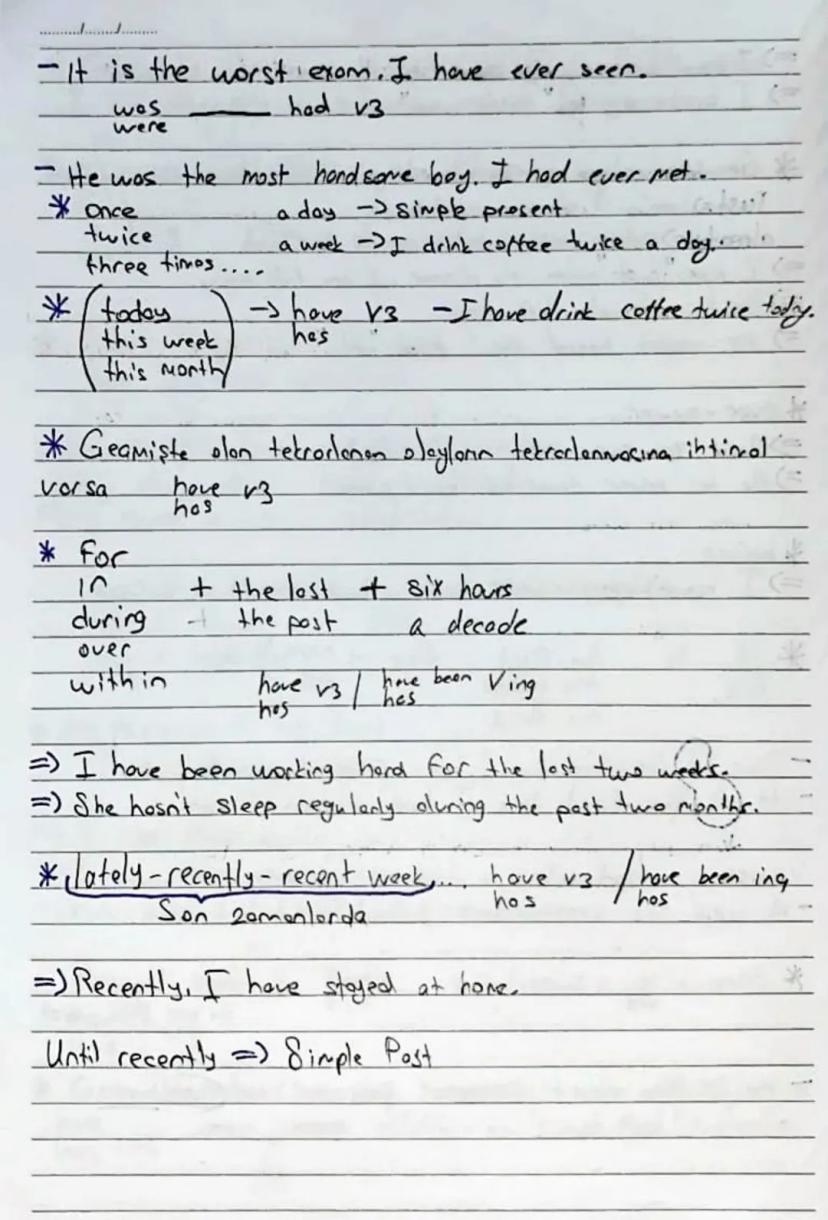 ....../....../......
- It is the worst exam. I have ever seen.
was ____ had v3
were
- He was the most handsome boy. I had ever met.
* once a day -> simple present
twice a week -> I drink coffee twice a day.
three times....
* (today -> have v3 - I have drink coffee twice today.
this week has
this month)
* Geçmişte olan tekrarlanan olayların tekrarlanmasına ihtimal
varsa have v3
has
* for
in + the last + six hours
during + the past a decade
over
within have v3 / have been Ving
has has
=> I have been working hard for the last two weeks.
=> She hasn't sleep regularly during the past two months.
* lately - recently - recent week.... have v3 / have been ing
Son zamanlarda has has
=> Recently, I have stayed at home.
Until recently => Simple Past